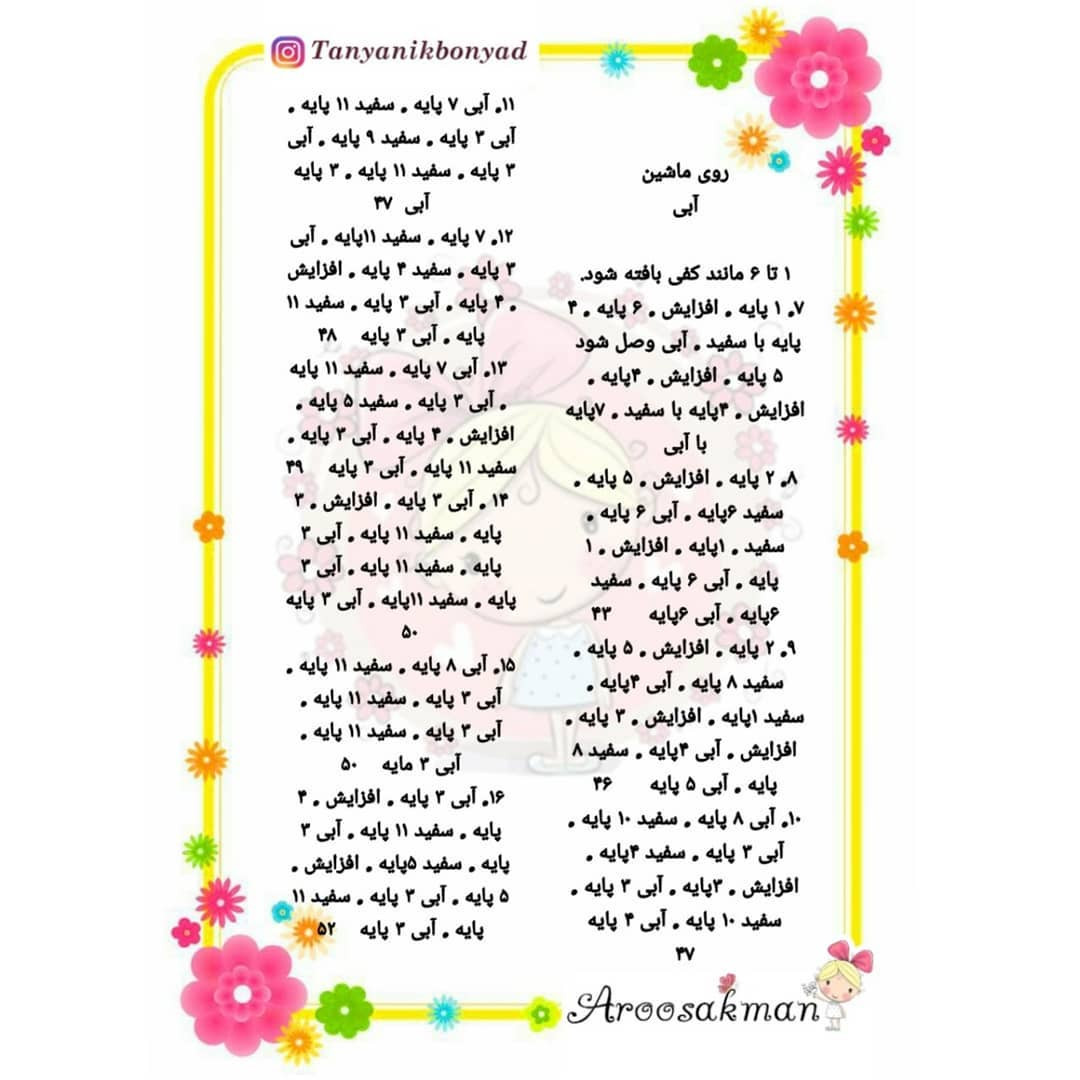 Tanyanikbonyad
روی ماشین
آبی
۱ تا ۶ مانند کفی بافته شود.
۷. ۱ پایه . افزایش . ۶ پایه . ۴
پایه با سفید . آبی وصل شود
۵ پایه . افزایش . ۴پایه .
افزایش . ۴پایه با سفید . ۷پایه
با آبی
۸. ۲ پایه . افزایش . ۵ پایه .
سفید ۶پایه . آبی ۶ پایه .
سفید . ۱پایه . افزایش . ۱
پایه . آبی ۶ پایه . سفید
۶پایه . آبی ۶پایه ۴۳
۹. ۲ پایه . افزایش . ۵ پایه .
سفید ۸ پایه . آبی ۴پایه .
سفید ۱پایه . افزایش . ۳ پایه .
افزایش . آبی ۴پایه . سفید ۸
پایه . آبی ۵ پایه ۴۶
۱۰. آبی ۸ پایه . سفید ۱۰ پایه .
آبی ۳ پایه . سفید ۴پایه .
افزایش . ۳پایه . آبی ۳ پایه .
سفید ۱۰ پایه . آبی ۴ پایه
۴۷
۱۱. آبی ۷ پایه . سفید ۱۱ پایه .
آبی ۳ پایه . سفید ۹ پایه . آبی
۳ پایه . سفید ۱۱ پایه . ۳ پایه
آبی ۴۷
۱۲. ۷ پایه . سفید ۱۱پایه . آبی
۳ پایه . سفید ۴ پایه . افزایش
. ۴ پایه . آبی ۳ پایه . سفید ۱۱
پایه . آبی ۳ پایه ۴۸
۱۳. آبی ۷ پایه . سفید ۱۱ پایه
. آبی ۳ پایه . سفید ۵ پایه .
افزایش . ۴ پایه . آبی ۳ پایه .
سفید ۱۱ پایه . آبی ۳ پایه ۴۹
۱۴ . آبی ۳ پایه . افزایش . ۳
پایه . سفید ۱۱ پایه . آبی ۳
پایه . سفید ۱۱ پایه . آبی ۳
پایه . سفید ۱۱پایه . آبی ۳ پایه
۵۰
۱۵. آبی ۸ پایه . سفید ۱۱ پایه .
آبی ۳ پایه . سفید ۱۱ پایه .
آبی ۳ پایه . سفید ۱۱ پایه .
آبی ۳ مایه ۵۰
۱۶. آبی ۳ پایه . افزایش . ۴
پایه . سفید ۱۱ پایه . آبی ۳
پایه . سفید ۵پایه . افزایش .
۵ پایه . آبی ۳ پایه . سفید ۱۱
پایه . آبی ۳ پایه ۵۲
Aroosakman